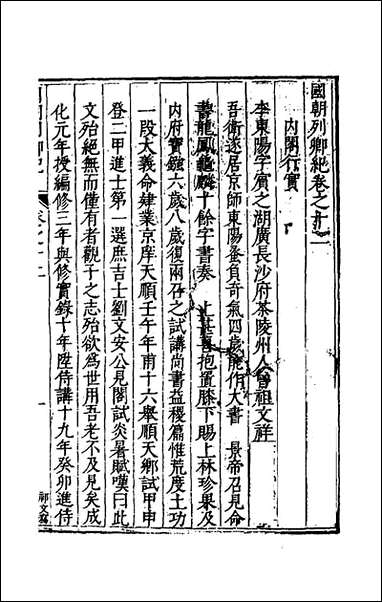 國朝列卿紀卷之十一
內閣行實
李東陽字賓之湖廣長沙府茶陵州人曾祖文祥
吾衛遂居京師東陽蚤負奇氣四歲能作大書 景帝召見命
書龍鳳龜麟十餘字書奏 上甚喜抱置膝下賜上林珍果及
內府寶鏹六歲八歲復兩召之試講尚書益稷篇惟荒度土功
一段大義命肄業京庠天順壬午年甫十六舉順天鄉試甲申
登二甲進士第一選庶吉士劉文安公見閣試炎暑賦嘆曰此
文殆絕無而僅有者觀子之志殆欲為世用吾老不及見矣成
化元年授編修三年與修實錄十年陞侍講十九年癸卯進侍
一
祁文寫